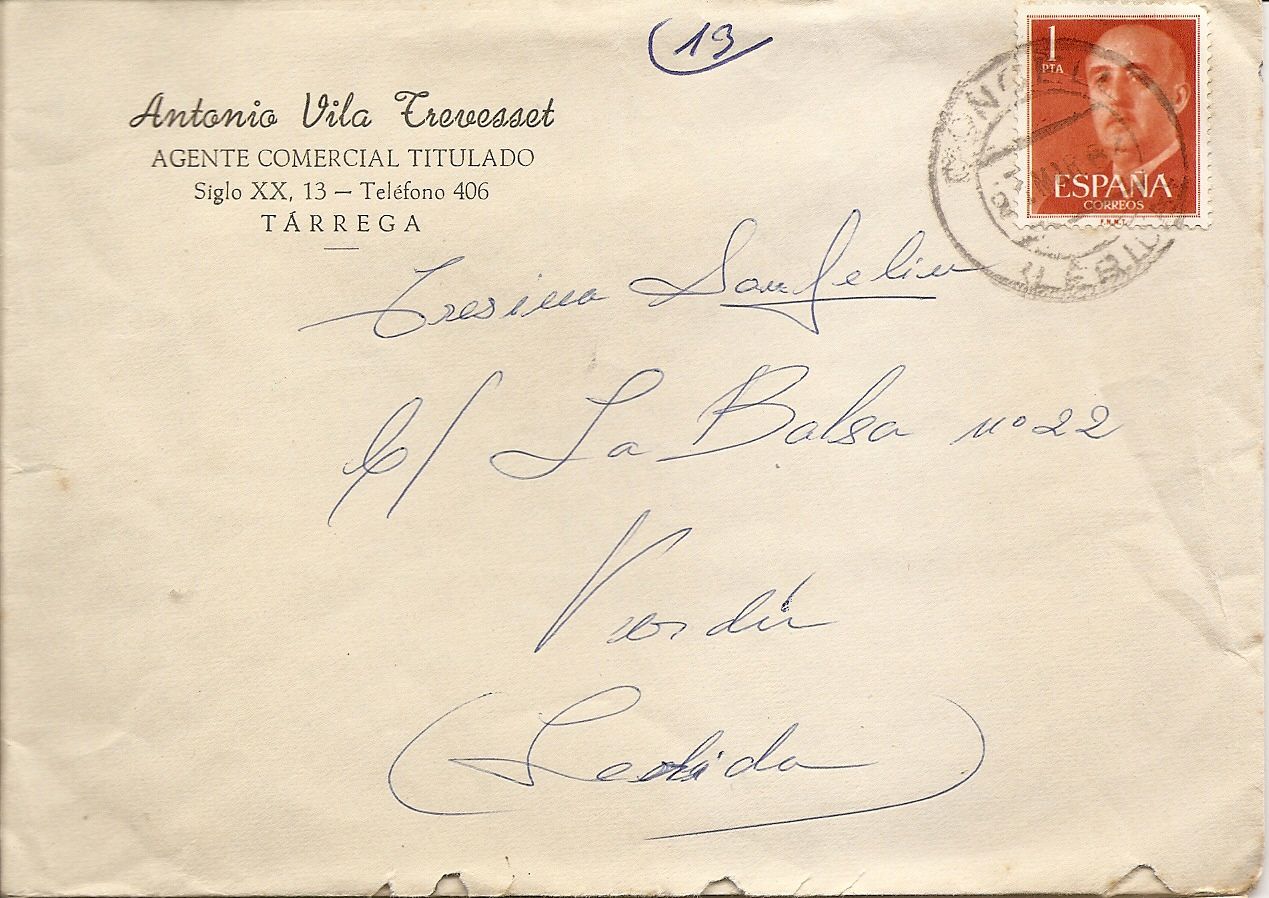 (13)
1
PTA
ESPAÑA
CORREOS
F.N.M.T.
LERIDA
Antonio Vila Trevesset
AGENTE COMERCIAL TITULADO
Siglo XX, 13 — Teléfono 406
TÁRREGA
Tresina Sanfeliu
C/ La Balsa nº 22
Verdú
(Lerida)